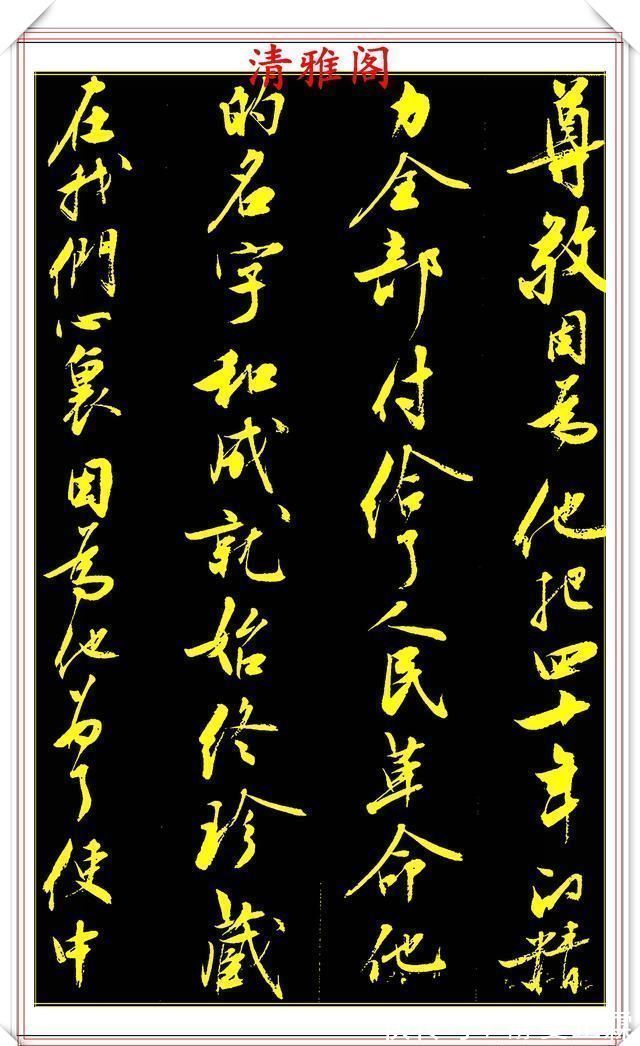 清雅阁
尊敬因为他把四十年的精
力全部付给了人民革命他
的名字和成就始终珍藏
在我們心裏因为他为了使中